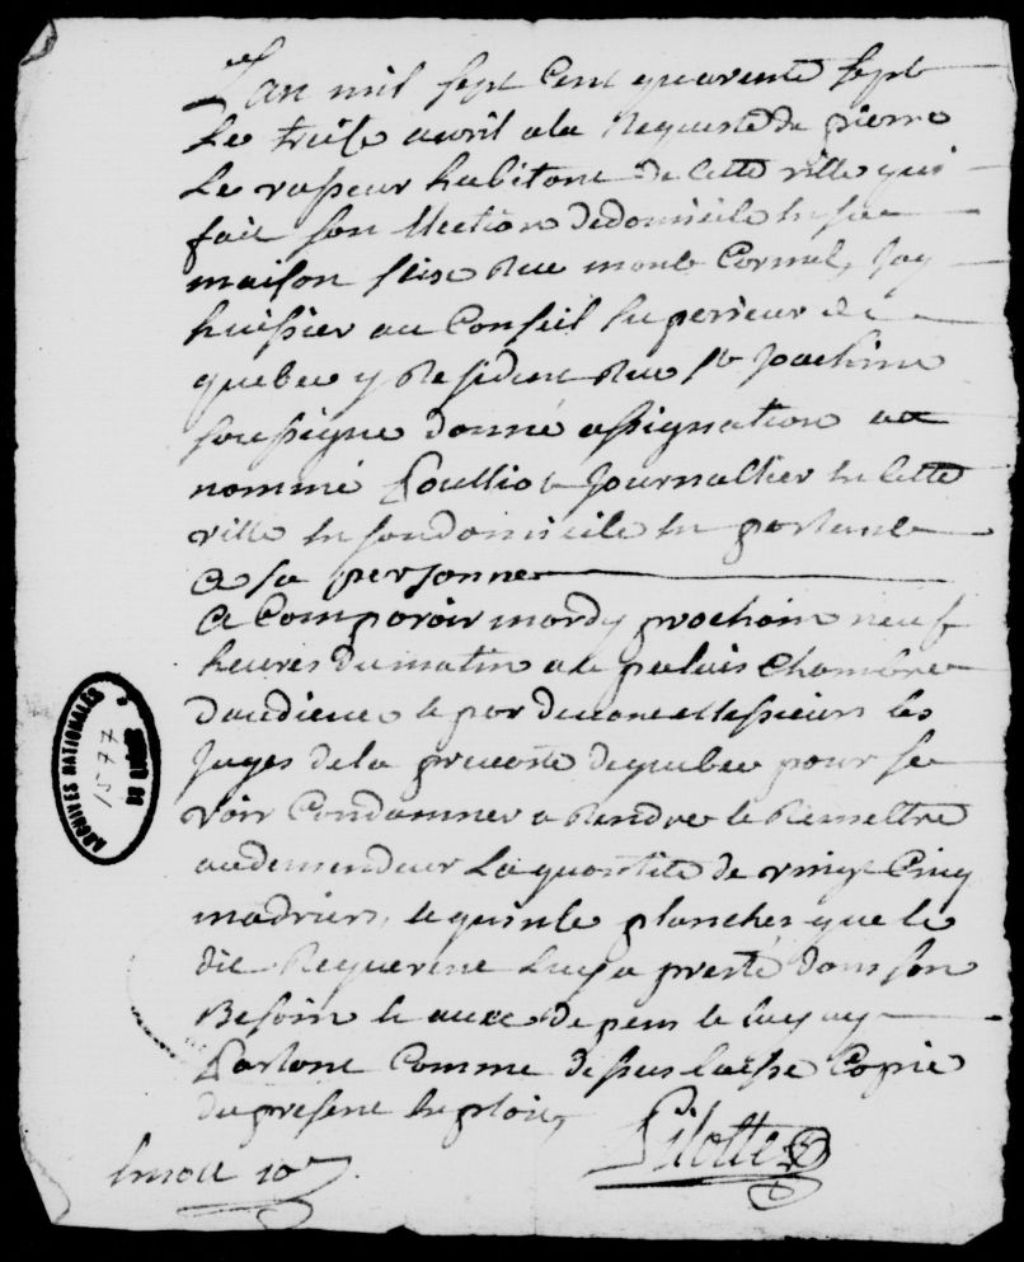 L'an mil sept Cent quarente sept
Le treise avril ala Requeste de pierre
Le vasseur habitant de Cette ville qui
fait son Election de domicile En sa
maison sise Rue mont Carmel, Jay
huissier au Conseil superieur de
quebec y Resident Rue St Joachim
soussigné donné assignation au
nommé Poulliot Journallier En Cette
ville En son domicile En parlant
a sa personne
a Comparoir mardy prochain neuf
heures du matin ala palais Chambre
daudience et par devant Messieurs les
Juges de la prevosté de quebec pour se
voir Condamner a Rendre et Remettre
au demendeur La quantité de vingt Cinq
madriers, et quinze planches que le
dit Requerent Luy a presté dans son
Besoin et aux depens et luy ay
Parlant Comme dessus laissé Copie
du present Exploit,
Pilotte
Emolt 10s
ARCHIVES NATIONALES
1577
DE QUÉBEC